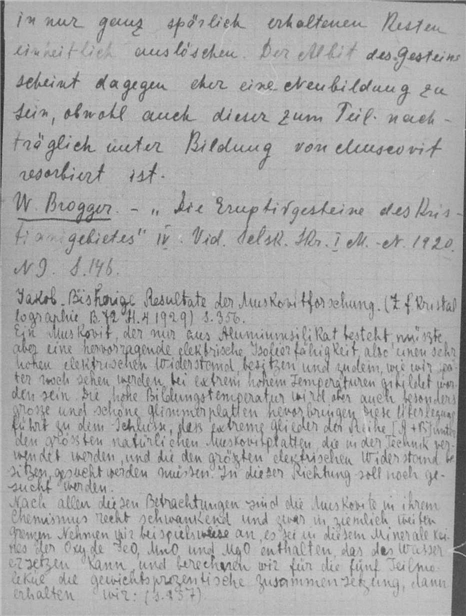 in nur ganz spärlich erhaltenen Resten
einheitlich auslöschen. Der Albit des Gesteine
scheint dagegen eher eine Neubildung zu
sein, obwohl auch dieser zum Teil nach-
träglich unter Bildung von Muscovit
resorbiert ist.
W. Brogger. - „Die Eruptivgesteine des Kris-
tianiagebietes" IV. Vid. Selsk. Skr. I M.-N. 1920.
N 9. S. 146.
Jakob. Bisherige Resultate der Muskovitforschung. (Z. f. Kristal
lographie B. 72 H. 4 1929) S. 356.
Ein Muskovit, der nur aus Aluminiumsilikat besteht, müszte
aber eine hervorragende elektrische Isolierfähigkeit, also einen sehr
hohen elektrischen Widerstand besitzen und zudem, wie wir spä-
ter noch sehen werden, bei extrem hohem Temperaturen gebildet wor-
den sein. Die hohe Bildungstemperatur wird aber auch besonders
grosse und schöne Glimmerplatten hervorbringen. Diese Überlegung
führt zu dem Schlusse, dass extreme Glieder der Reihe unter
den grössten natürlichen Muskovitplatten, die in der Technik ver-
wendet werden, und die den gröszten elektrischen Widerstand be-
sitzen, gesucht werden müssen. In dieser Richtung soll noch ge-
sucht werden.
Nach allen diesen Betrachtungen sind die Muskovite in ihrem
Chemismus recht schwankend und zwar in ziemlich weiten
Grenzen. Nehmen wir beispielsweise an, es sei in diesem Minerale
der Oxyde FeO, MnO und MgO enthalten, das das Wasser
ersetzen kann, und berechnen wir für die fünf Teilmo-
leküle die gewichtsprozentische Zusammensetzung, dann
erhalten wir: (S. 357)